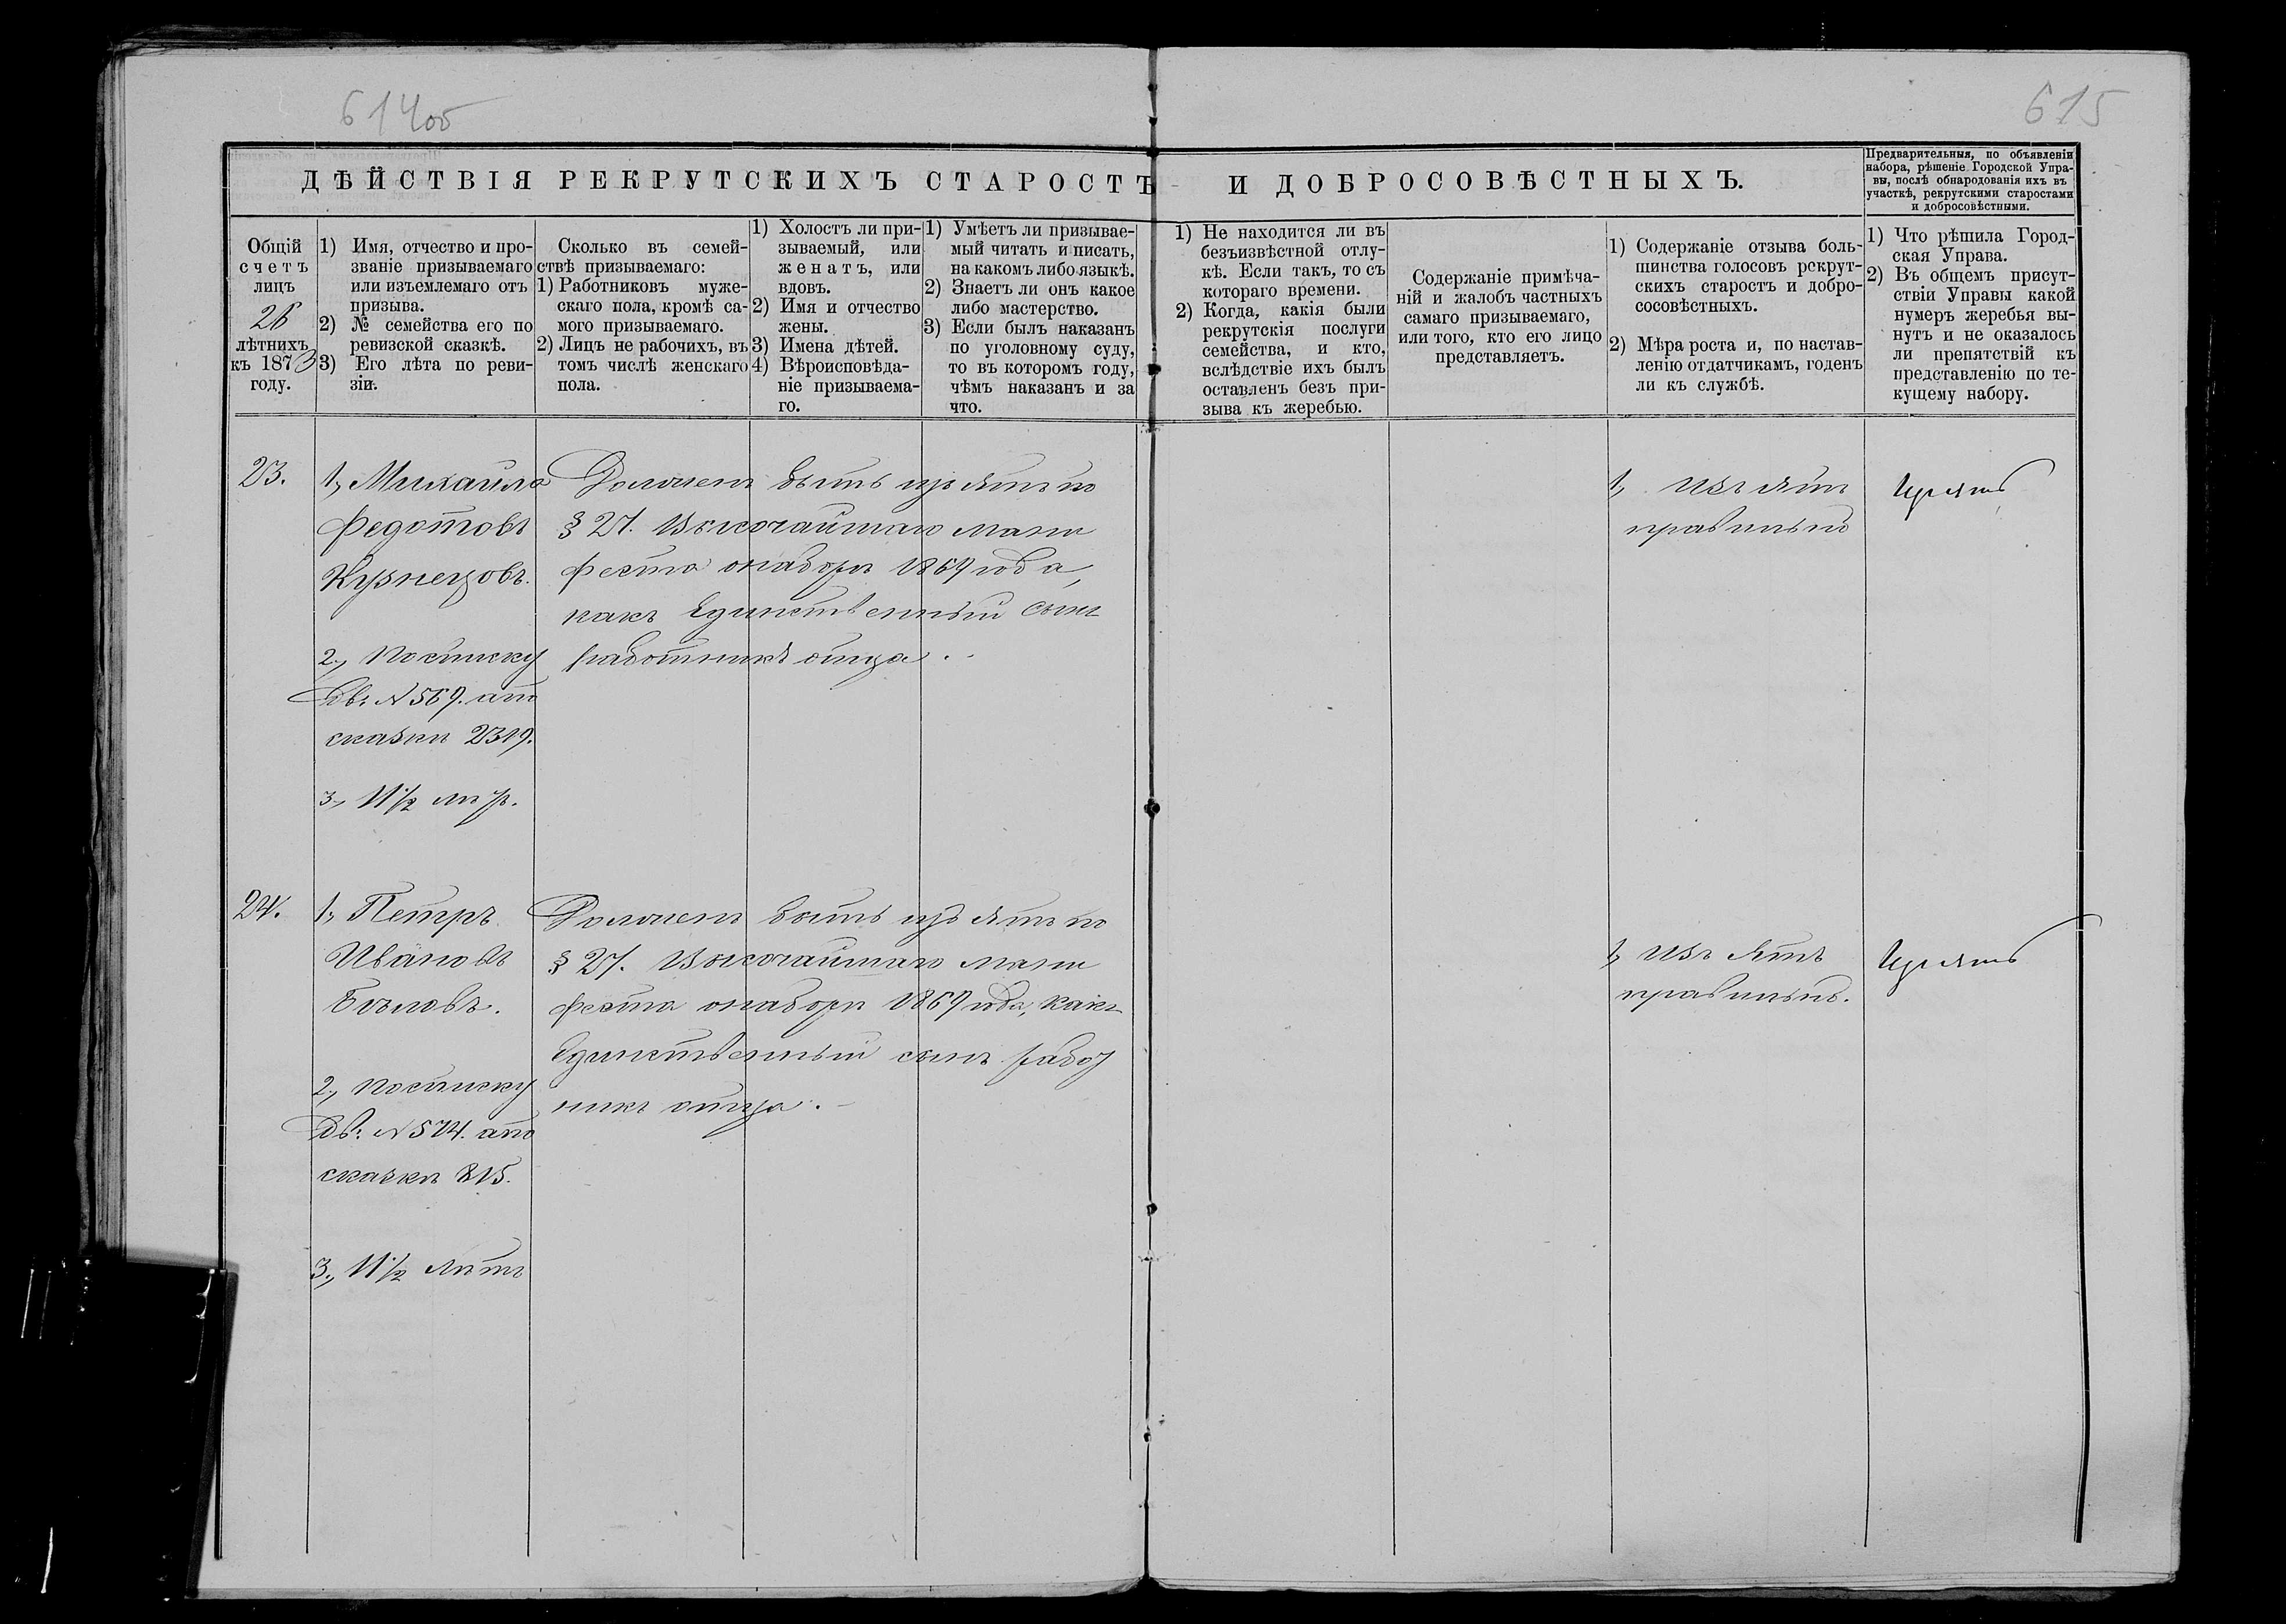 614об
615
ДѢЙСТВІЯ РЕКРУТСКИХЪ СТАРОСТЪ И ДОБРОСОВѢСТНЫХЪ.
Предварительныя, по объявленіи
набора, рѣшеніе Городской Упра-
вы, послѣ обнародованія ихъ въ
участкѣ, рекрутскими старостами
и добросовѣстными.
Общій
счетъ
лицъ
26
лѣтнихъ
къ 1873
году.
1) Имя, отчество и про-
званіе призываемаго
или изъемлемаго отъ
призыва.
2) № семейства его по
ревизской сказкѣ.
3) Его лѣта по реви-
зіи.
Сколько въ семей-
ствѣ призываемаго:
1) Работниковъ муже-
скаго пола, кромѣ са-
мого призываемаго.
2) Лицъ не рабочихъ, въ
томъ числѣ женскаго
пола.
1) Холостъ ли при-
зываемый, или
женатъ, или
вдовъ.
2) Имя и отчество
жены.
3) Имена дѣтей.
4) Вѣроисповѣда-
ніе призываема-
го.
1) Умѣетъ ли призывае-
мый читать и писать,
на какомъ либо языкѣ.
2) Знаетъ ли онъ какое
либо мастерство.
3) Если былъ наказанъ
по уголовному суду,
то въ которомъ году,
чѣмъ наказанъ и за
что.
1) Не находится ли въ
безъизвѣстной отлу-
кѣ. Если такъ, то съ
котораго времени.
2) Когда, какія были
рекрутскія послуги
семейства, и кто,
вслѣдствіе ихъ былъ
оставленъ безъ при-
зыва къ жеребью.
Содержаніе примѣча-
ній и жалобъ частныхъ
самаго призываемаго,
или того, кто его лицо
представляетъ.
1) Содержаніе отзыва боль-
шинства голосовъ рекрут-
скихъ старостъ и добро-
сосовѣстныхъ.
2) Мѣра роста и, по настав-
ленію отдатчикамъ, годенъ
ли къ службѣ.
1) Что рѣшила Город-
ская Управа.
2) Въ общемъ присут-
ствіи Управы какой
нумеръ жеребья вы-
нутъ и не оказалось
ли препятствій къ
представленію по те-
кущему набору.
23.
1, Михаила
Федотовъ
Кузнецовъ.
2, По списку
Дв. № 569. а по
сказкѣ 2319.
3, 11½ лѣтъ.
Долженъ быть изъятъ по
§ 27. Высочайшаго мани
феста о наборѣ 1869 года,
какъ Единственный сынъ
работникъ отца.
1, Изъятъ
правильно
Изъять
24.
1, Петръ
Ивановъ
Бѣловъ.
2, По списку
Дв. № 574. а по
сказкѣ 815.
3, 11½ лѣтъ
Долженъ быть изъятъ по
§ 27. Высочайшаго мани
феста о наборѣ 1869 года, какъ
Единственный сынъ работ
никъ отца.
1, Изъятъ
правильно.
Изъять